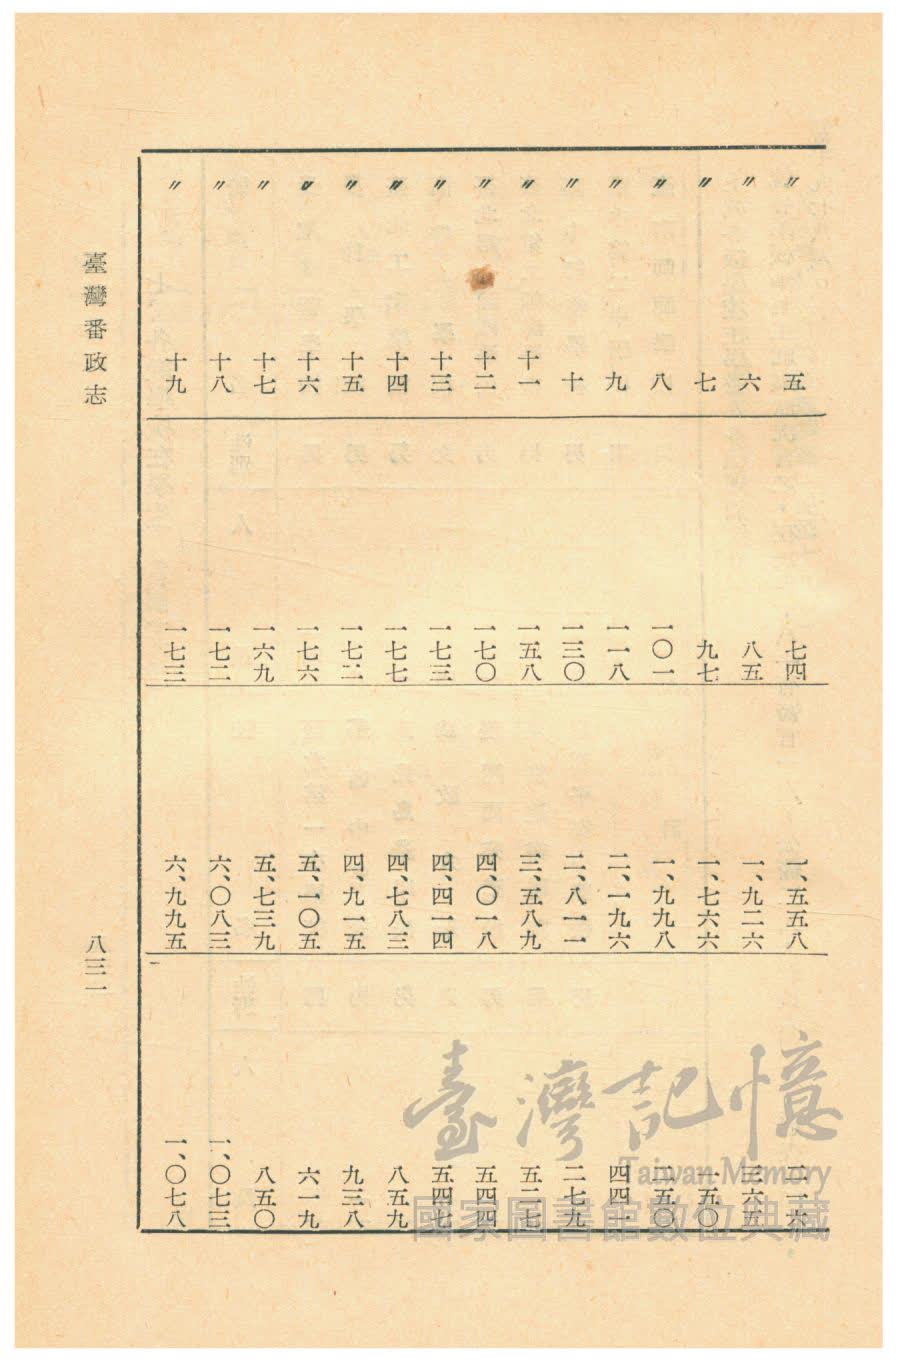 〃 五 七四 一、五五八 二一六
〃 六 八五 一、九二六 三六五
〃 七 九七 一、七六六 一五〇
〃 八 一〇一 一、九九八 二五〇
〃 九 一一八 二、一九六 四四一
〃 十 一三〇 二、八一一 二七九
〃 十一 一五八 三、五八九 五二七
〃 十二 一七〇 四、〇一八 五四四
〃 十三 一七三 四、四一四 五四七
〃 十四 一七七 四、七八三 八五九
〃 十五 一七二 四、九一五 九三八
〃 十六 一七六 五、一〇五 六一九
〃 十七 一六九 五、七三九 八五〇
〃 十八 一七二 六、〇八三 一、〇七三
〃 十九 一七三 六、九九五 一、〇七八
臺灣番政志
八三一
臺灣記憶
Taiwan Memory
國家圖書館數位典藏